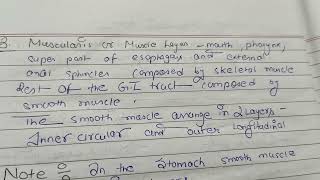 3. Muscularis or Muscle layer - mouth, pharynx,
super part of esophagus and external
anal sphincter composed by skeletal muscle
Rest of the G.I tract composed by
smooth muscle.
The smooth muscle arrange in 2 layers -
Inner circular and outer longitudinal
Note % In the stomach smooth muscle